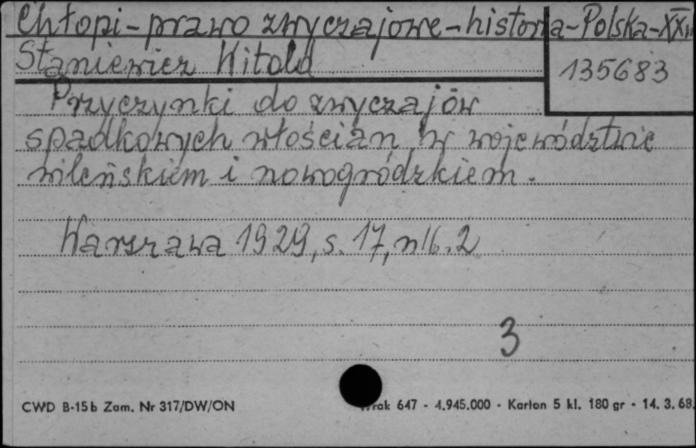 Chłopi-prawo zwyczajowe-historia-Polska-XX w
Staniewicz Witold
135683
Przyczynki do zwyczajów
spadkowych włościan w województwie
wileńskiem i nowogródzkiem.
Warszawa 1929, s. 17, nlb. 2
3
CWD B-15b Zam. Nr 317/DW/ON
647 - 4.945.000 - Karton 5 kl. 180 gr - 14. 3. 68.